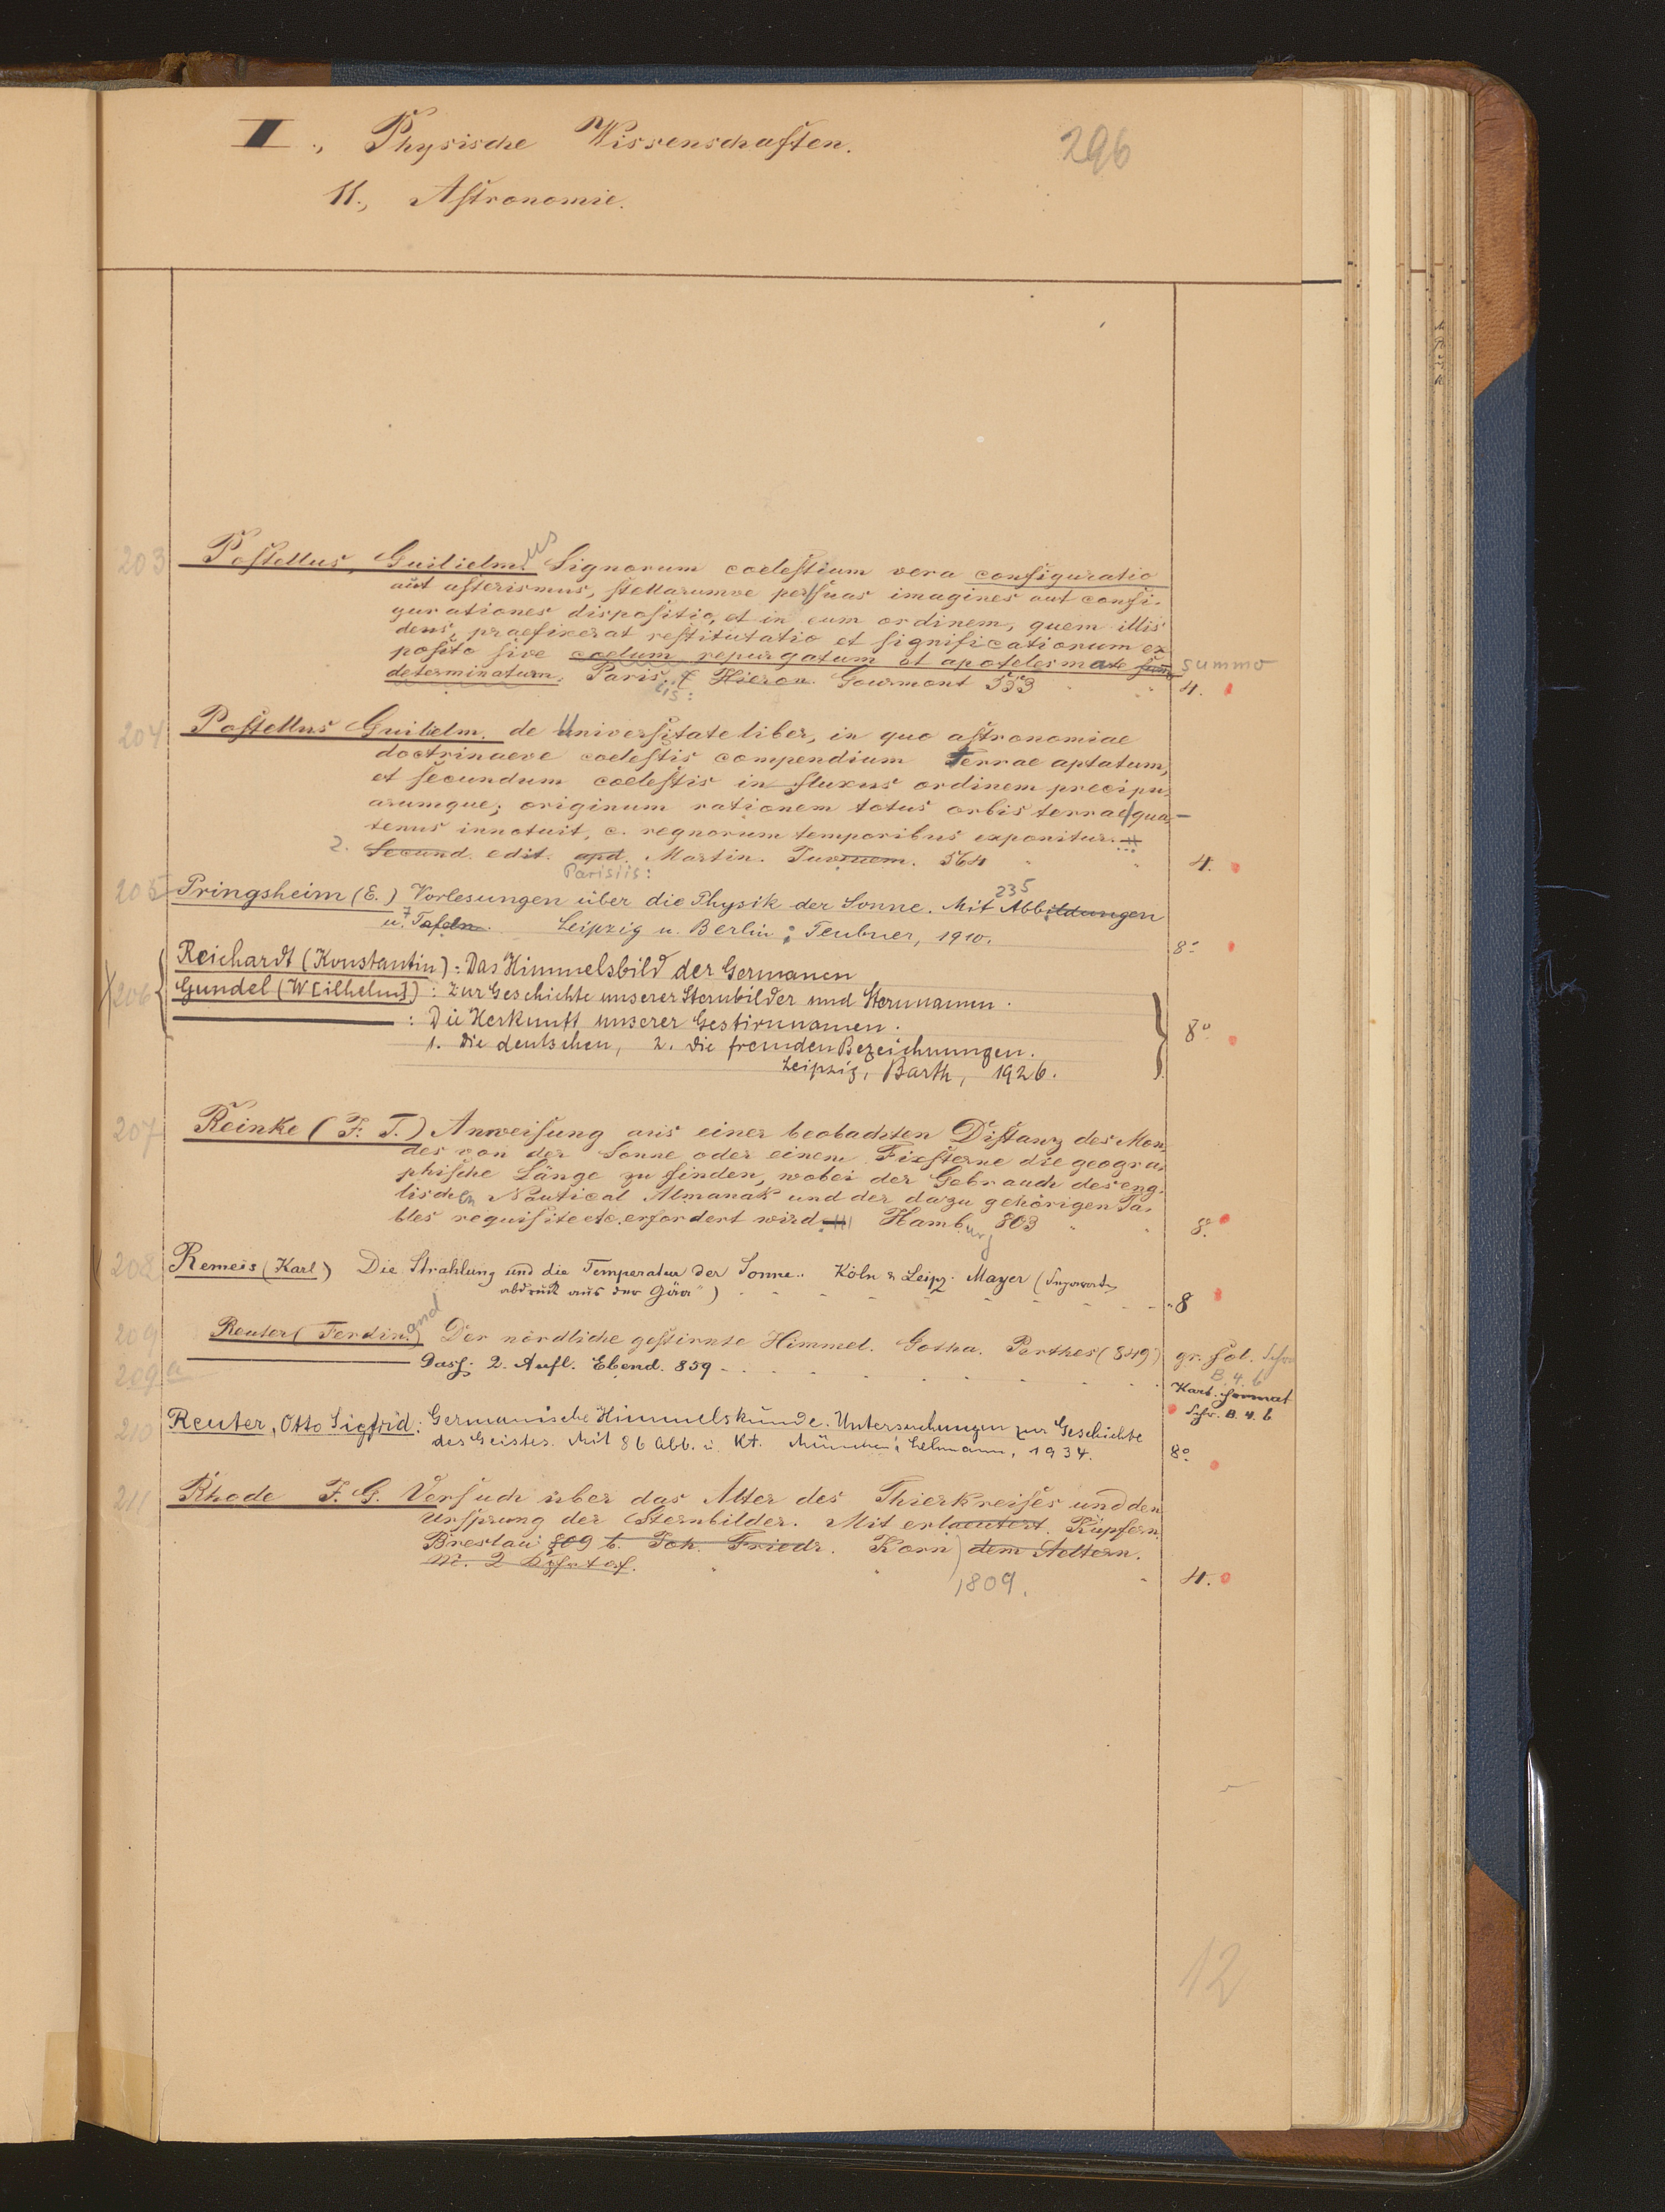 II., Physische Wissenschaften.
296
11., Astronomie.
203 Postellus, Guilielmus Signorum coelestium vera configuratio
aut asterismus, stellarumve per suas imagines aut confi-
gurationes dispositio, et in eum ordinem, quem illis
deus praefixerat restitutatio et significationum ex
posito sive coelum repurgatum et apotelesmate sum summo
determinatum, Paris. Hieron. Gourmont 553 4.
204 Postellus Guilelm. de Universitate liber, in quo astronomiae
doctrinaeve coelestis compendium Terrae aptatum,
et secundum coelestis in fluxus ordinem precipu-
arumque; originum rationem totus orbis terrae qua-
tenus innotuit, c. regnorum temporibus exponitur.
2. Secund. edit. apd. Martin. Juvenem. 564 4.
Parisiis:
205 Pringsheim (E.) Vorlesungen über die Physik der Sonne. Mit 235 Abbildungen
u. 7 Tafeln. Leipzig u. Berlin: Teubner, 1910. 8°
Reichardt (Konstantin): Das Himmelsbild der Germanen
206 Gundel (W[ilhelm]): Zur Geschichte unserer Sternbilder und Sternnamen.
: Die Herkunft unserer Gestirnnamen. 8°
1. Die deutschen, 2. Die fremden Bezeichnungen.
Leipzig, Barth, 1926.
207 Reinke (J. T.) Anweisung aus einer beobachten Distanz des Mon-
des von der Sonne oder einem Fixsterne die geogra-
phische Länge zu finden, wobei der Gebrauch des eng-
lischen Nautical Almanak und der dazu gehörigen Ta-
bles requisite etc. erfordert wird. Hamburg 803 8°
208 Remeis (Karl) Die Strahlung und die Temperatur der Sonne. Köln & Leipz. Mayer (
abdruck aus der Gäa") 8
209 Reuter (Ferdinand) Der nördliche gestirnte Himmel. Gotha. Perthes (849) gr. fol.
B. 4. b
209a Dass. 2. Aufl. Ebend. 859 Kart. format
B. 4. b
210 Reuter, Otto Sigfrid: Germanische Himmelskunde. Untersuchungen zur Geschichte
des Geistes. Mit 86 Abb. u. Kt. München: Lehmann, 1934. 8°
211 Rhode J. G. Versuch über das Alter des Thierkreises und den
Ursprung der Sternbilder. Mit erlaeutert. Kupfern.
Breslau 809 b. Joh. Friedr. Korn dem Aeltern.
M. 2
1809. 4.
12